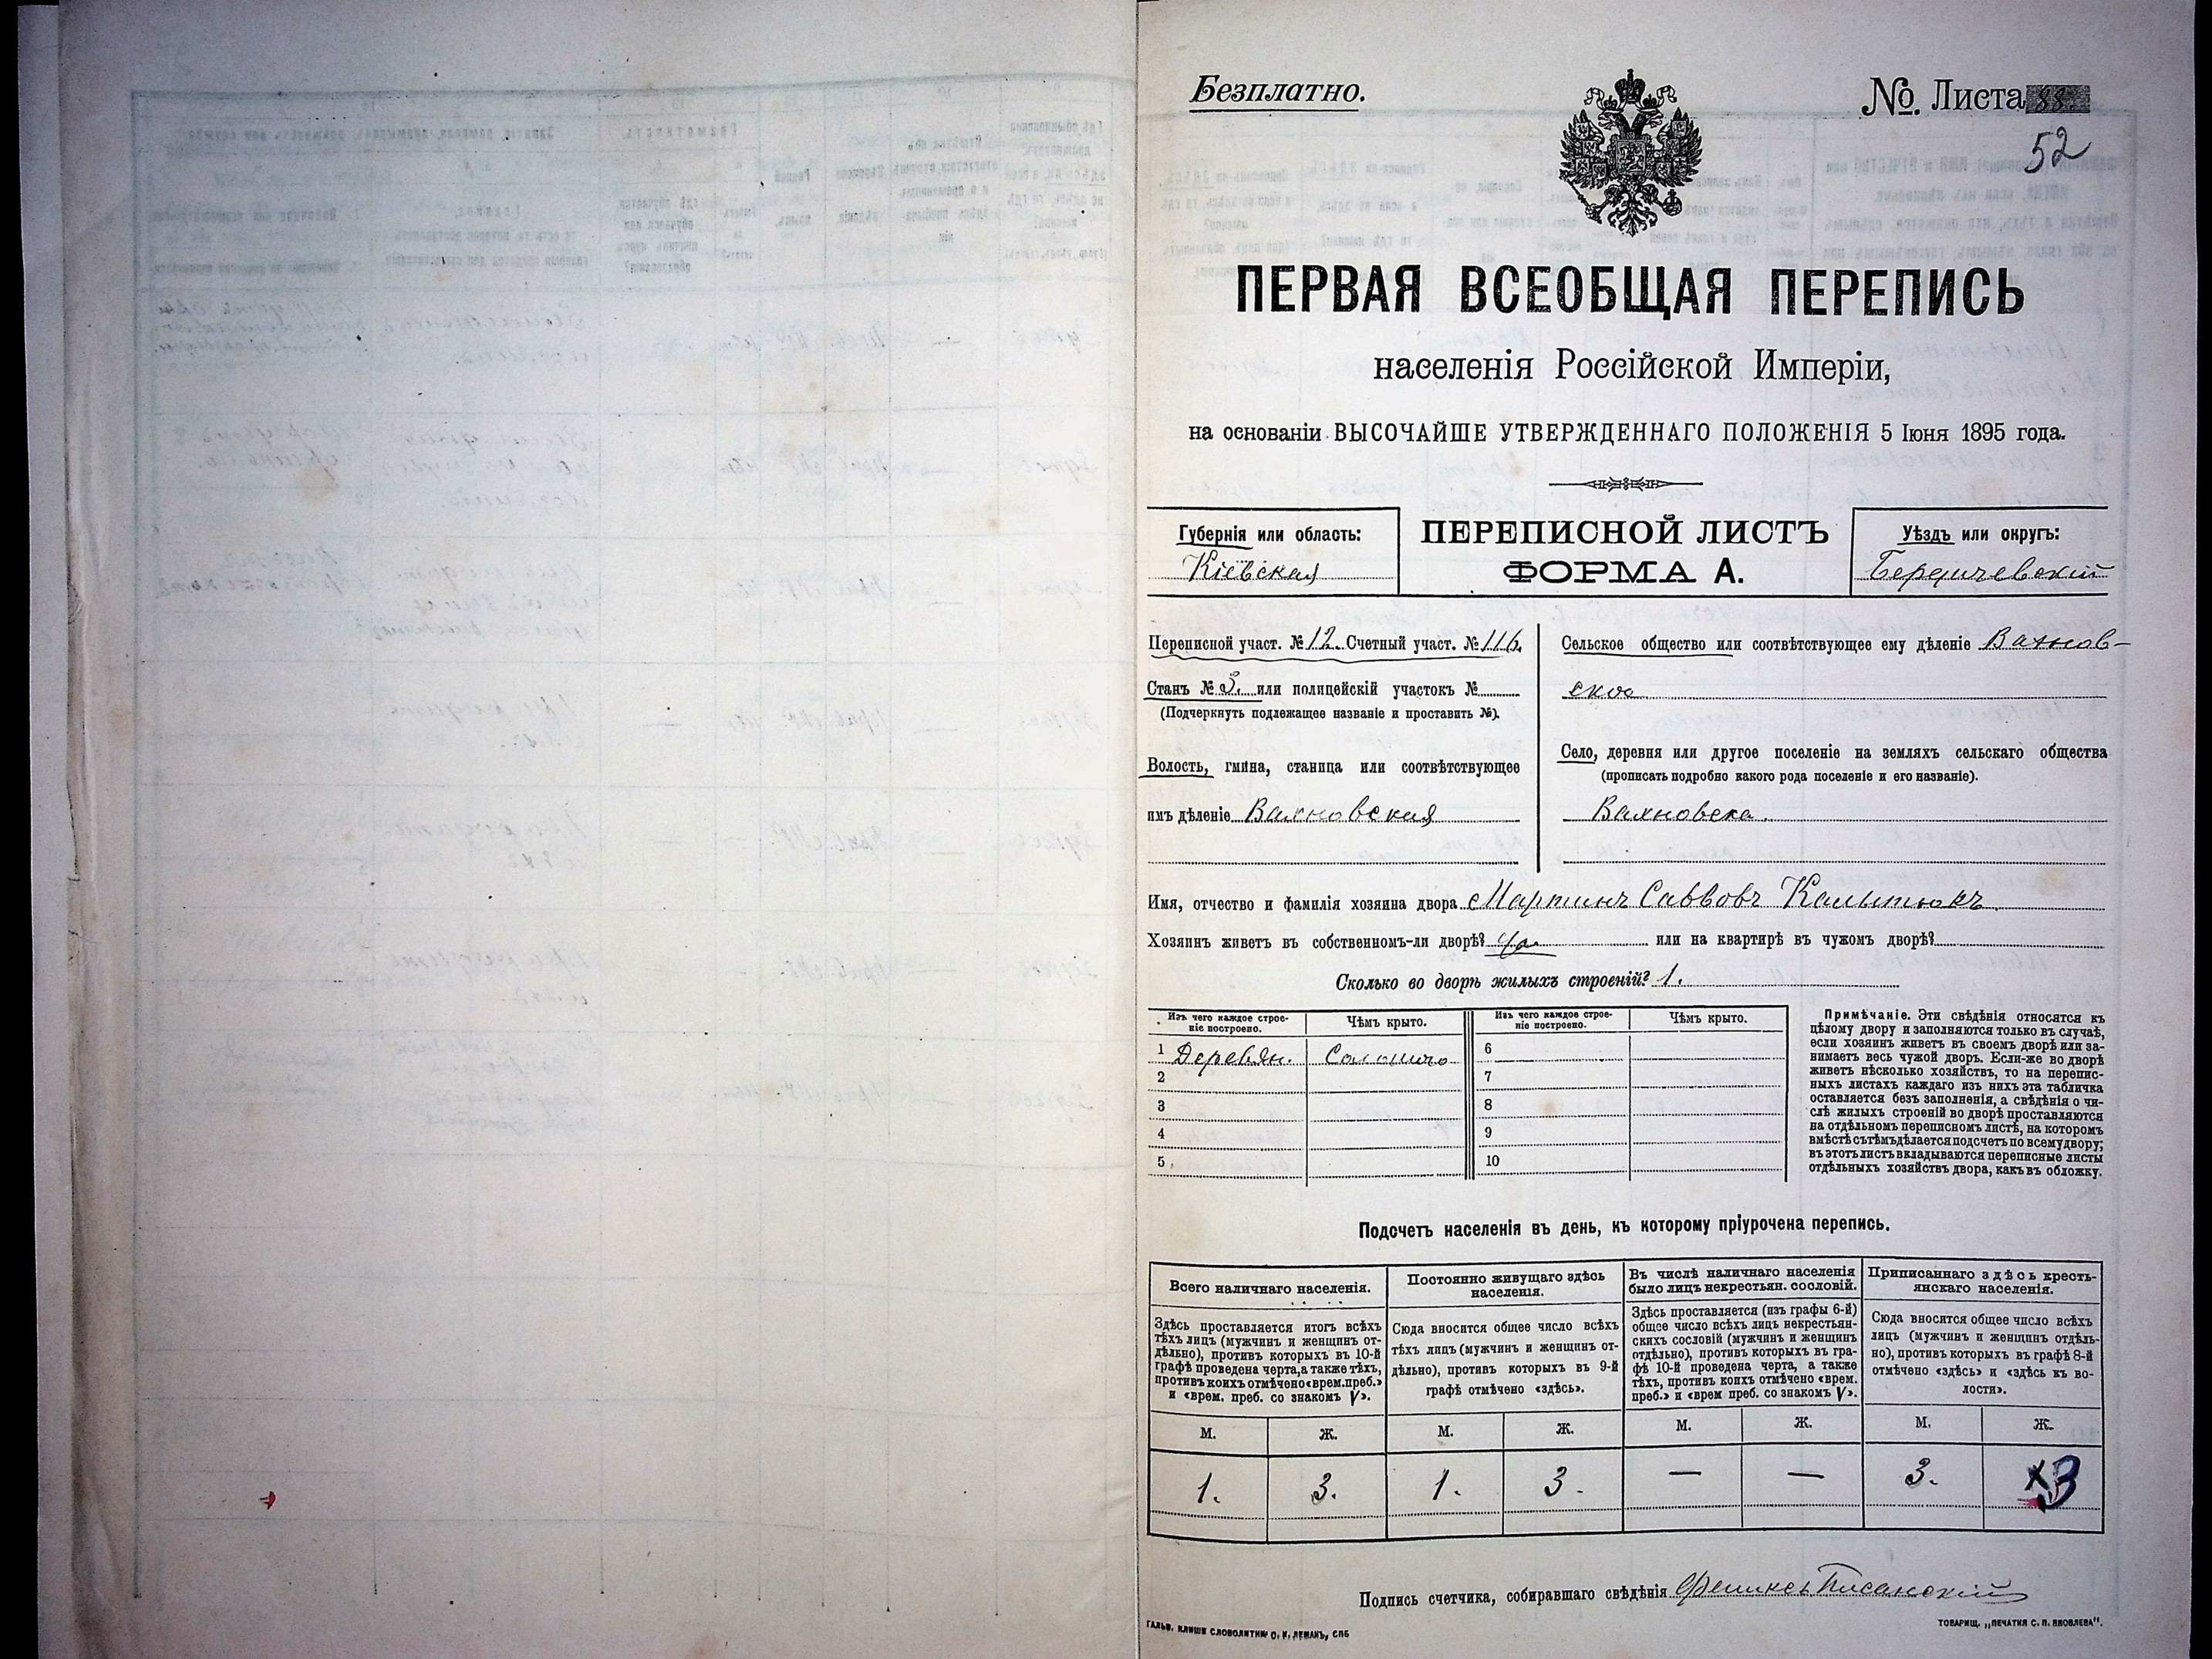 Безплатно.
№ Листа 88.
52
ПЕРВАЯ ВСЕОБЩАЯ ПЕРЕПИСЬ
населенія Россійской Имперіи,
на основаніи ВЫСОЧАЙШЕ УТВЕРЖДЕННАГО ПОЛОЖЕНІЯ 5 Іюня 1895 года.
Губернія или область:
Кіевская
ПЕРЕПИСНОЙ ЛИСТЪ
ФОРМА А.
Уѣздъ или округъ:
Бердичевскій
Переписной участ. № 12. Счетный участ. № 116.
Станъ № 3. или полицейскій участокъ №
(Подчеркнуть подлежащее названіе и проставить №).
Волость, гмина, станица или соотвѣтствующее
имъ дѣленіе Вахновская
Сельское общество или соотвѣтствующее ему дѣленіе Вахнов-
ское
Село, деревня или другое поселеніе на земляхъ сельскаго общества
(прописать подробно какого рода поселеніе и его названіе).
Вахновека.
Имя, отчество и фамилія хозяина двора Мартинъ Саввовъ
Хозяинъ живетъ въ собственномъ-ли дворѣ? да или на квартирѣ въ чужомъ дворѣ?
Сколько во дворѣ жилыхъ строеній? 1.
Изъ чего каждое строе-
ніе построено.
Чѣмъ крыто.
Изъ чего каждое строе-
ніе построено.
Чѣмъ крыто.
1 Деревян. Соломою 6
2 7
3 8
4 9
5 10
Примѣчаніе. Эти свѣдѣнія относятся къ
цѣлому двору и заполняются только въ случаѣ,
если хозяинъ живетъ въ своемъ дворѣ или за-
нимаетъ весь чужой дворъ. Если-же во дворѣ
живетъ нѣсколько хозяйствъ, то на перепис-
ныхъ листахъ каждаго изъ нихъ эта табличка
оставляется безъ заполненія, а свѣдѣнія о чи-
слѣ жилыхъ строеній во дворѣ проставляются
на отдѣльномъ переписномъ листѣ, на которомъ
вмѣстѣ съ тѣмъ дѣлается подсчетъ по всему двору;
въ этотъ листъ вкладываются переписные листы
отдѣльныхъ хозяйствъ двора, какъ въ обложку.
Подсчетъ населенія въ день, къ которому пріурочена перепись.
Всего наличнаго населенія.
Здѣсь проставляется итогъ всѣхъ
тѣхъ лицъ (мужчинъ и женщинъ от-
дѣльно), противъ которыхъ въ 10-й
графѣ проведена черта, а также тѣхъ,
противъ коихъ отмѣчено «врем. преб.»
и «врем. преб. со знакомъ V».
Постоянно живущаго здѣсь
населенія.
Сюда вносится общее число всѣхъ
тѣхъ лицъ (мужчинъ и женщинъ от-
дѣльно), противъ которыхъ въ 9-й
графѣ отмѣчено «здѣсь».
Въ числѣ наличнаго населенія
было лицъ некрестьян. сословій.
Здѣсь проставляется (изъ графы 6-й)
общее число всѣхъ лицъ некрестьян-
скихъ сословій (мужчинъ и женщинъ
отдѣльно), противъ которыхъ въ гра-
фѣ 10-й проведена черта, а также
тѣхъ, противъ коихъ отмѣчено «врем.
преб.» и «врем преб. со знакомъ V».
Приписаннаго здѣсь кресть-
янскаго населенія.
Сюда вносится общее число всѣхъ
лицъ (мужчинъ и женщинъ отдѣль-
но), противъ которыхъ въ графѣ 8-й
отмѣчено «здѣсь» и «здѣсь къ во-
лости».
М. Ж. М. Ж. М. Ж. М. Ж.
1. 3. 1. 3. — — 3. 3
Подпись счетчика, собиравшаго свѣдѣнія Феликсъ Писанскій
ГАЛЬВ. КЛИШЕ СЛОВОЛИТНИ О. И. ЛЕМАНЪ, СПБ
ТОВАРИЩ. „ПЕЧАТНЯ С. П. ЯКОВЛЕВА".